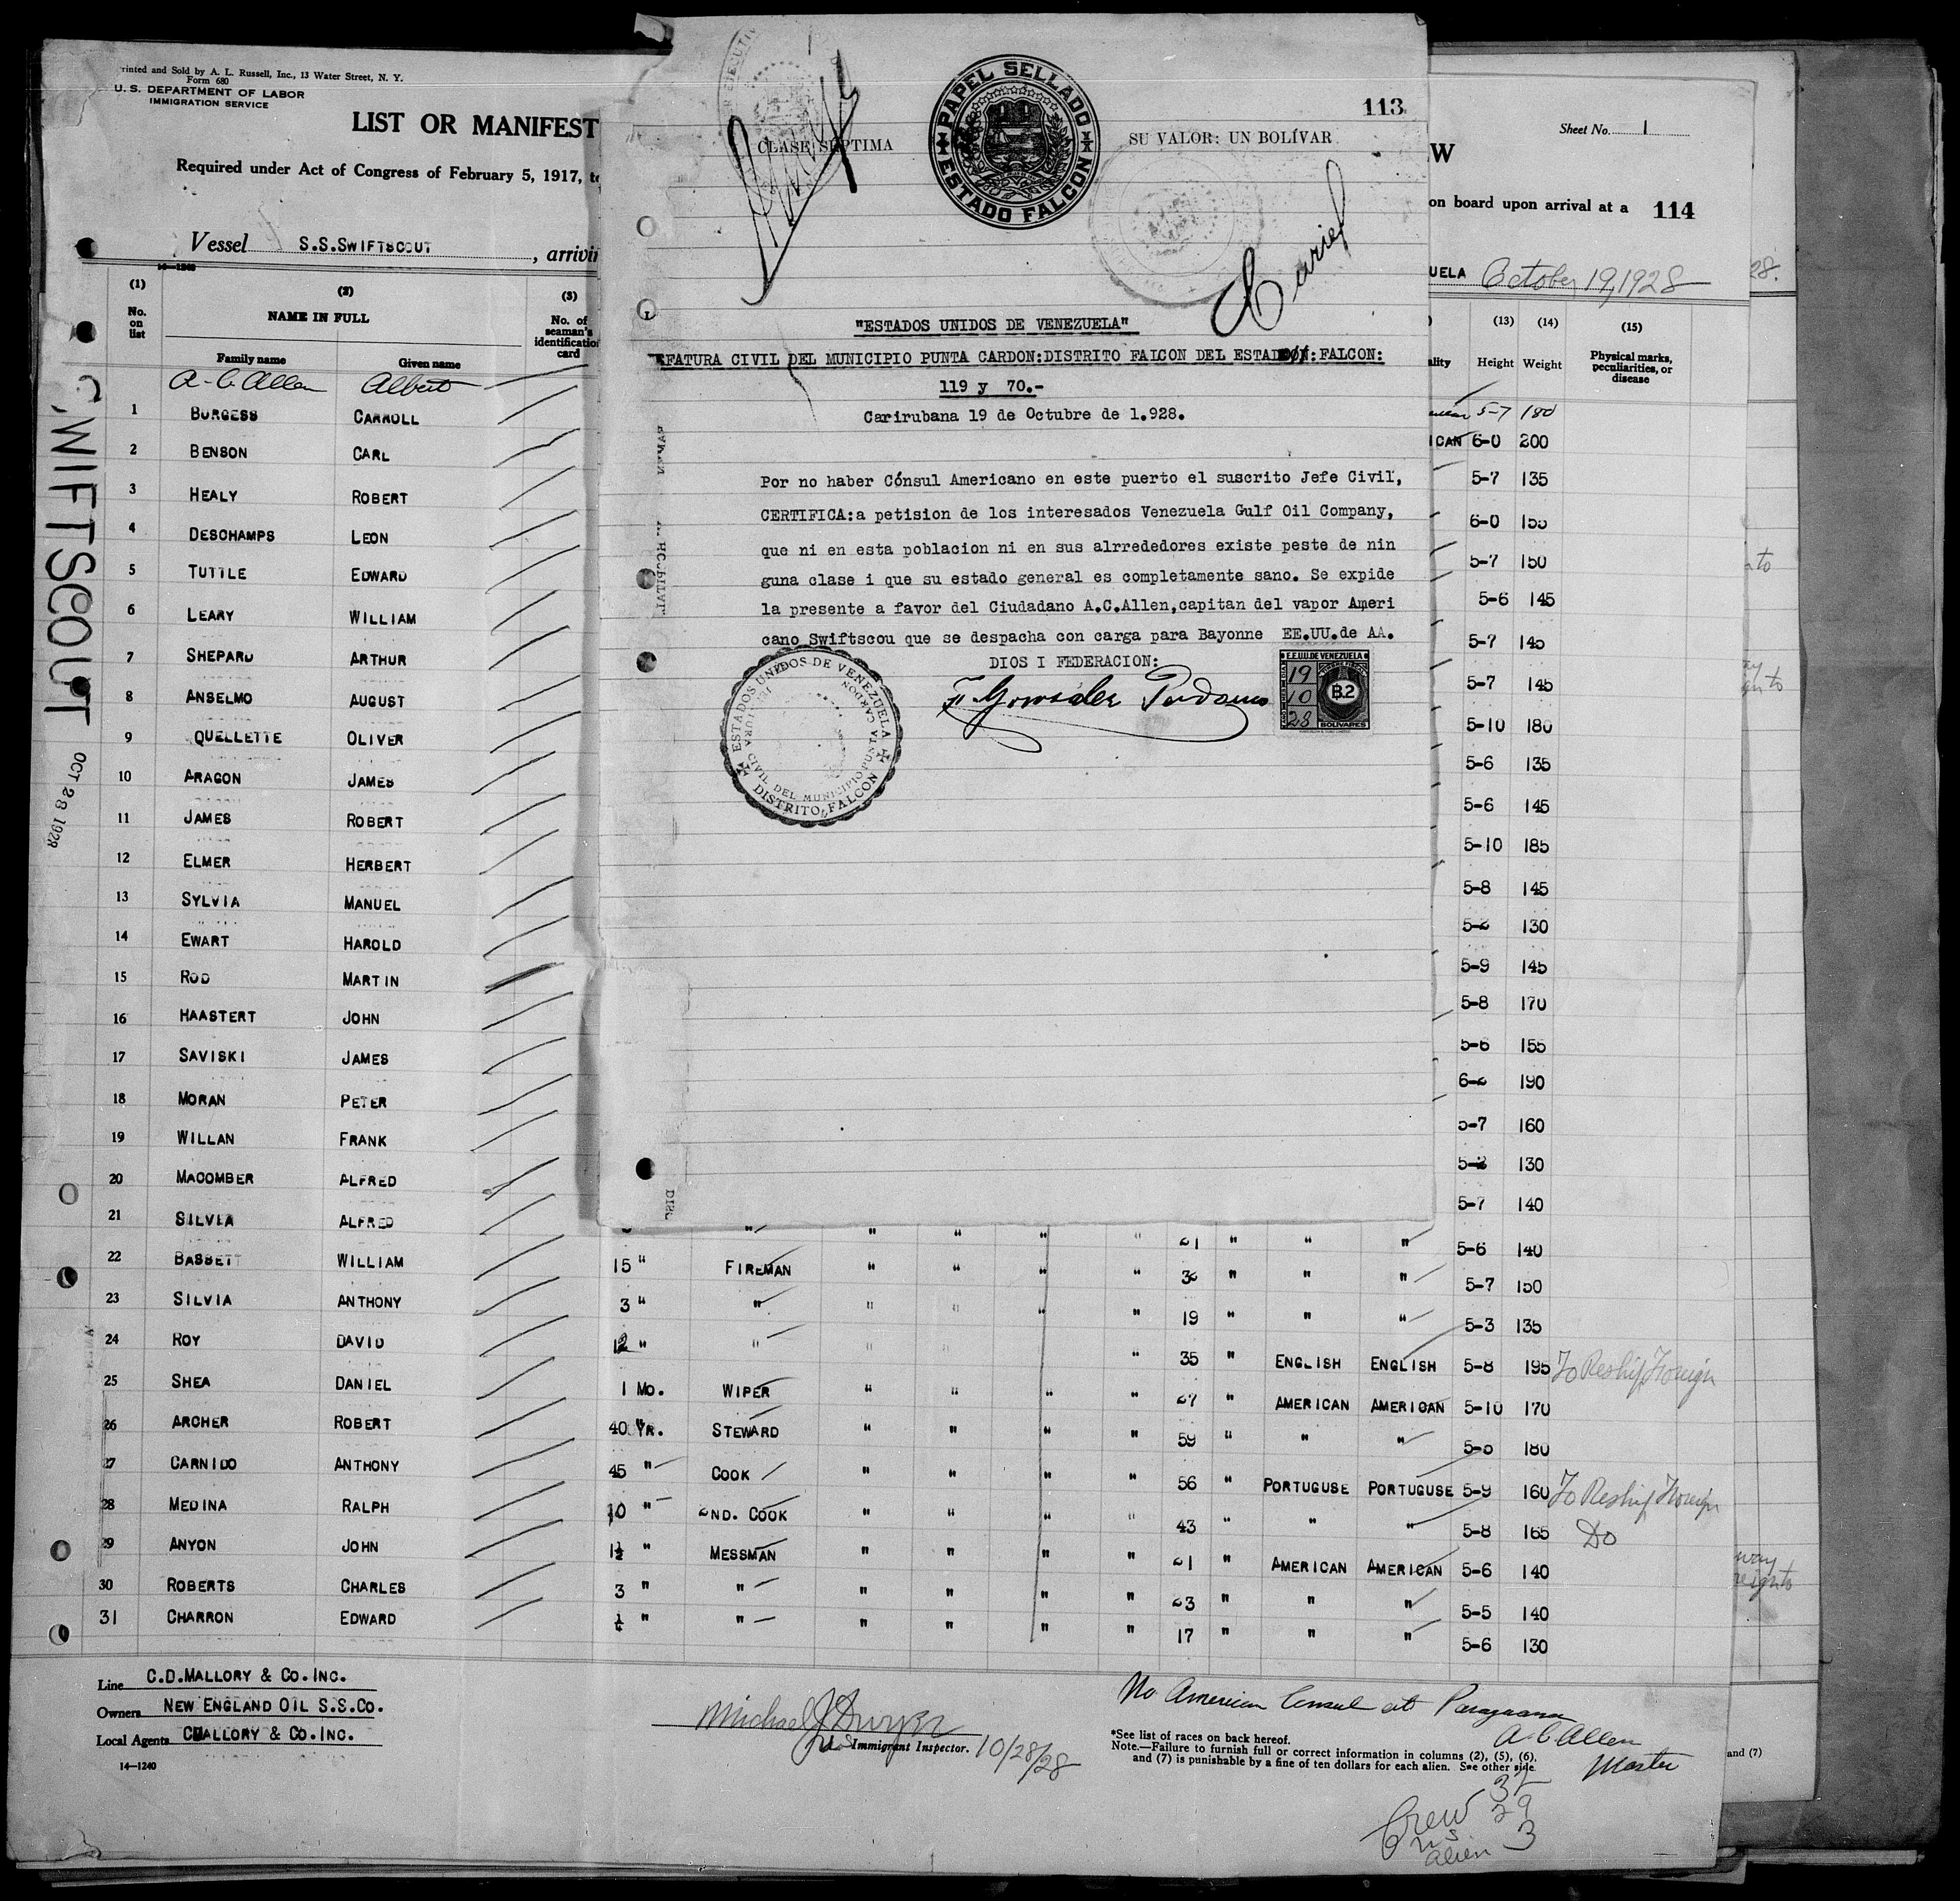 rinted and Sold by A. L. Russell, Inc., 13 Water Street, N. Y.
Form 680
U. S. DEPARTMENT OF LABOR
IMMIGRATION SERVICE
LIST OR MANIFEST
Required under Act of Congress of February 5, 1917, to
Vessel S.S.SWIFTSCOUT, arrivin
14-1240
(1) (2) (3)
No. on list NAME IN FULL No. of seaman's identification card
Family name Given name
A. C. Allen Albert
1 BURGESS CARROLL
2 BENSON CARL
3 HEALY ROBERT
4 DESCHAMPS LEON
5 TUTTLE EDWARD
6 LEARY WILLIAM
7 SHEPARD ARTHUR
8 ANSELMO AUGUST
9 QUELLETTE OLIVER
10 ARAGON JAMES
11 JAMES ROBERT
12 ELMER HERBERT
13 SYLVIA MANUEL
14 EWART HAROLD
15 ROD MARTIN
16 HAASTERT JOHN
17 SAVISKI JAMES
18 MORAN PETER
19 WILLAN FRANK
20 MACOMBER ALFRED
21 SILVIA ALFRED
22 BASSETT WILLIAM
23 SILVIA ANTHONY
24 ROY DAVID
25 SHEA DANIEL
26 ARCHER ROBERT
27 CARNIDO ANTHONY
28 MEDINA RALPH
29 ANYON JOHN
30 ROBERTS CHARLES
31 CHARRON EDWARD
SWIFTSCOUT
OCT 28 1928
113
CLASE SÉPTIMA
PAPEL SELLADO
ESTADO FALCON
SU VALOR: UN BOLÍVAR
"ESTADOS UNIDOS DE VENEZUELA"
EFATURA CIVIL DEL MUNICIPIO PUNTA CARDON:DISTRITO FALCON DEL ESTADO:FALCON:
119 y 70.-
Carirubana 19 de Octubre de 1.928.
Por no haber Cónsul Americano en este puerto el suscrito Jefe Civil,
CERTIFICA:a petision de los interesados Venezuela Gulf Oil Company,
que ni en esta poblacion ni en sus alrrededores existe peste de nin
guna clase i que su estado general es completamente sano. Se expide
la presente a favor del Ciudadano A.C.Allen,capitan del vapor Ameri
cano Swiftscou que se despacha con carga para Bayonne EE.UU.de AA.
DIOS I FEDERACION:
ESTADOS UNIDOS DE VENEZUELA
JEFATURA CIVIL DEL MUNICIPIO PUNTA CARDON
DISTRITO FALCON
E.E.U.U.DE VENEZUELA
19
10
28
B.2
BOLIVARES
W
Sheet No. 1
on board upon arrival at a 114
UELA October 19, 1928
28.
(13) (14) (15)
ality Height Weight Physical marks, peculiarities, or disease
5-7 180
ICAN 6-0 200
5-7 135
6-0 155
5-7 150
5-6 145
5-7 145
5-7 145
5-10 180
5-6 135
5-6 145
5-10 185
5-8 145
5-2 130
5-9 145
5-8 170
5-6 155
6-2 190
5-7 160
5-2 130
5-7 140
" " " " " 21 " " " 5-6 140
15 " FIREMAN " " " " 32 " " " 5-7 150
3 " " " " " " 19 " " " 5-3 135
12 " " " " " " 35 " ENGLISH ENGLISH 5-8 195 To Reship Foreign
1 MO. WIPER " " " " 27 " AMERICAN AMERICAN 5-10 170
40 YR. STEWARD " " " " 59 " " " 5-5 180
45 " COOK " " " " 56 " PORTUGUSE PORTUGUSE 5-9 160 To Reship Foreign
10 " 2ND. COOK " " " " 43 " " " 5-8 165 Do
1½ " MESSMAN " " " " 21 " AMERICAN AMERICAN 5-6 140
3 " " " " " " 23 " " " 5-5 140
¼ " " " " " " 17 " " " 5-6 130
Line C.D.MALLORY & CO.INC.
Owners NEW ENGLAND OIL S.S.CO.
Local Agents CMALLORY & CO.INC.
14—1240
Michael J Dwyer
Immigrant Inspector. 10/28/28
No American Consul at Paraguana
A. C. Allen
Master
*See list of races on back hereof.
Note.—Failure to furnish full or correct information in columns (2), (5), (6),
and (7) is punishable by a fine of ten dollars for each alien. See other side.
and (7)
Crew 32
US 29
alien 3